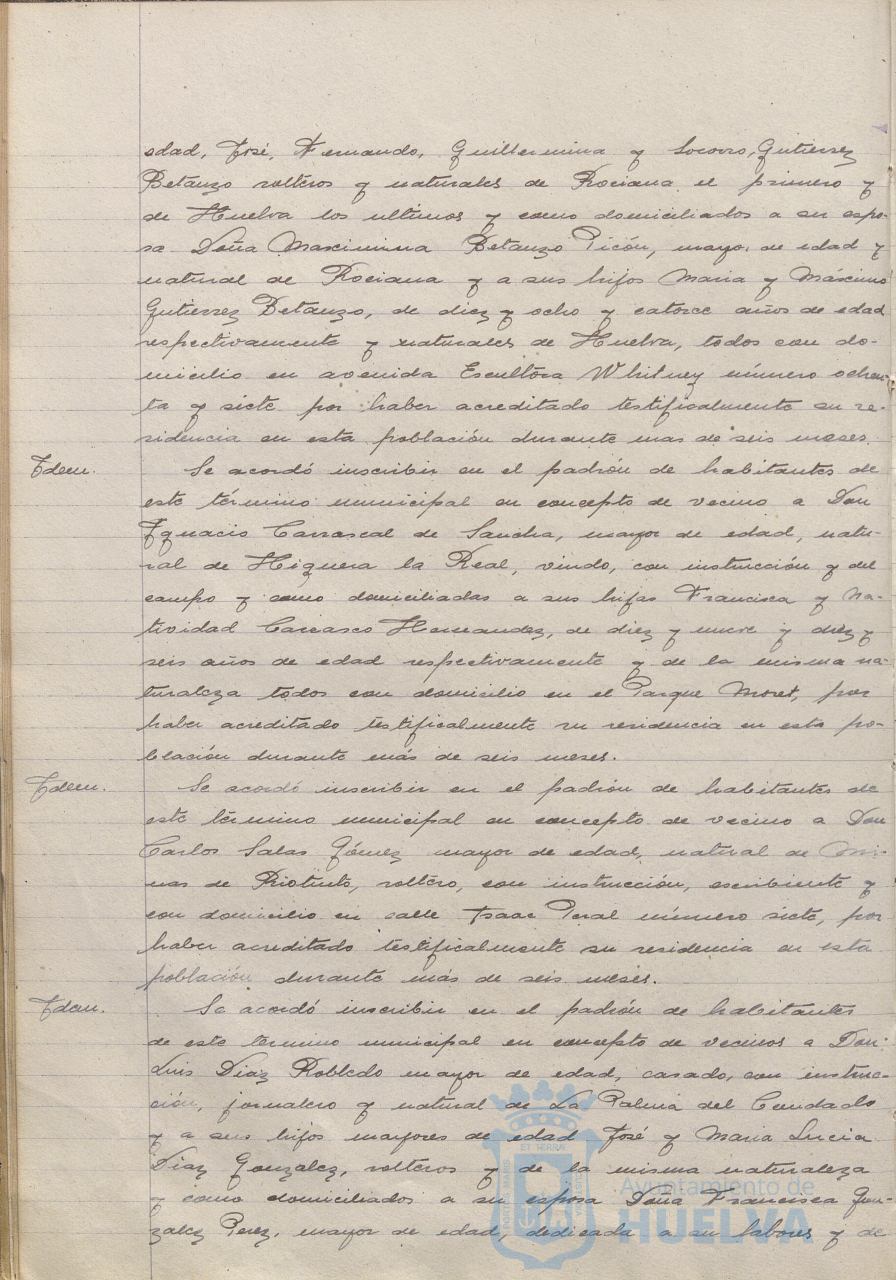 edad, José, Fernando, Guillermina y Socorro, Gutierrez
Betanzo solteros y naturales de Rociana el primero y
de Huelva los ultimos y como domiciliados a su espo-
sa Doña Maximina Betanzo Picón, mayor de edad y
natural de Rociana y a sus hijos Maria y Máximo
Gutierrez Betanzo, de diez y ocho y catorce años de edad
respectivamente y naturales de Huelva, todos con do-
micilio en avenida Escultora Whitney número ochen-
ta y siete por haber acreditado testificalmente su re-
sidencia en esta población durante mas de seis meses.
Idem. Se acordó inscribir en el padrón de habitantes de
este término municipal en concepto de vecino a Don
Ignacio Carrascal de Sancha, mayor de edad, natu-
ral de Higuera la Real, viudo, con instrucción y del
campo y como domiciliadas a sus hijas Francisca y Na-
tividad Carrasco Hernandez, de diez y nueve y diez y
seis años de edad respectivamente y de la misma na-
turaleza todos con domicilio en el Parque Moret, por
haber acreditado testificalmente su residencia en esta po-
blación durante más de seis meses.
Idem. Se acordó inscribir en el padrón de habitantes de
este término municipal en concepto de vecino a Don
Carlos Salas Gómez mayor de edad, natural de Mi-
nas de Riotinto, soltero, con instrucción, escribiente y
con domicilio en calle Isaac Peral número siete, por
haber acreditado testificalmente su residencia en esta
población durante más de seis meses.
Idem. Se acordó inscribir en el padrón de habitantes
de este termino municipal en concepto de vecinos a Don
Luis Diaz Robledo mayor de edad, casado, con instruc-
ción, jornalero y natural de La Palma del Condado
y a sus hijos mayores de edad José y Maria Lucia
Diaz Gonzalez, solteros y de la misma naturaleza
y como domiciliados a su esposa Doña Francisca Gon-
zalez Perez, mayor de edad, dedicada a su labores y de
Ayuntamiento de
HUELVA
PORTUS MARIS
ET TERRAE